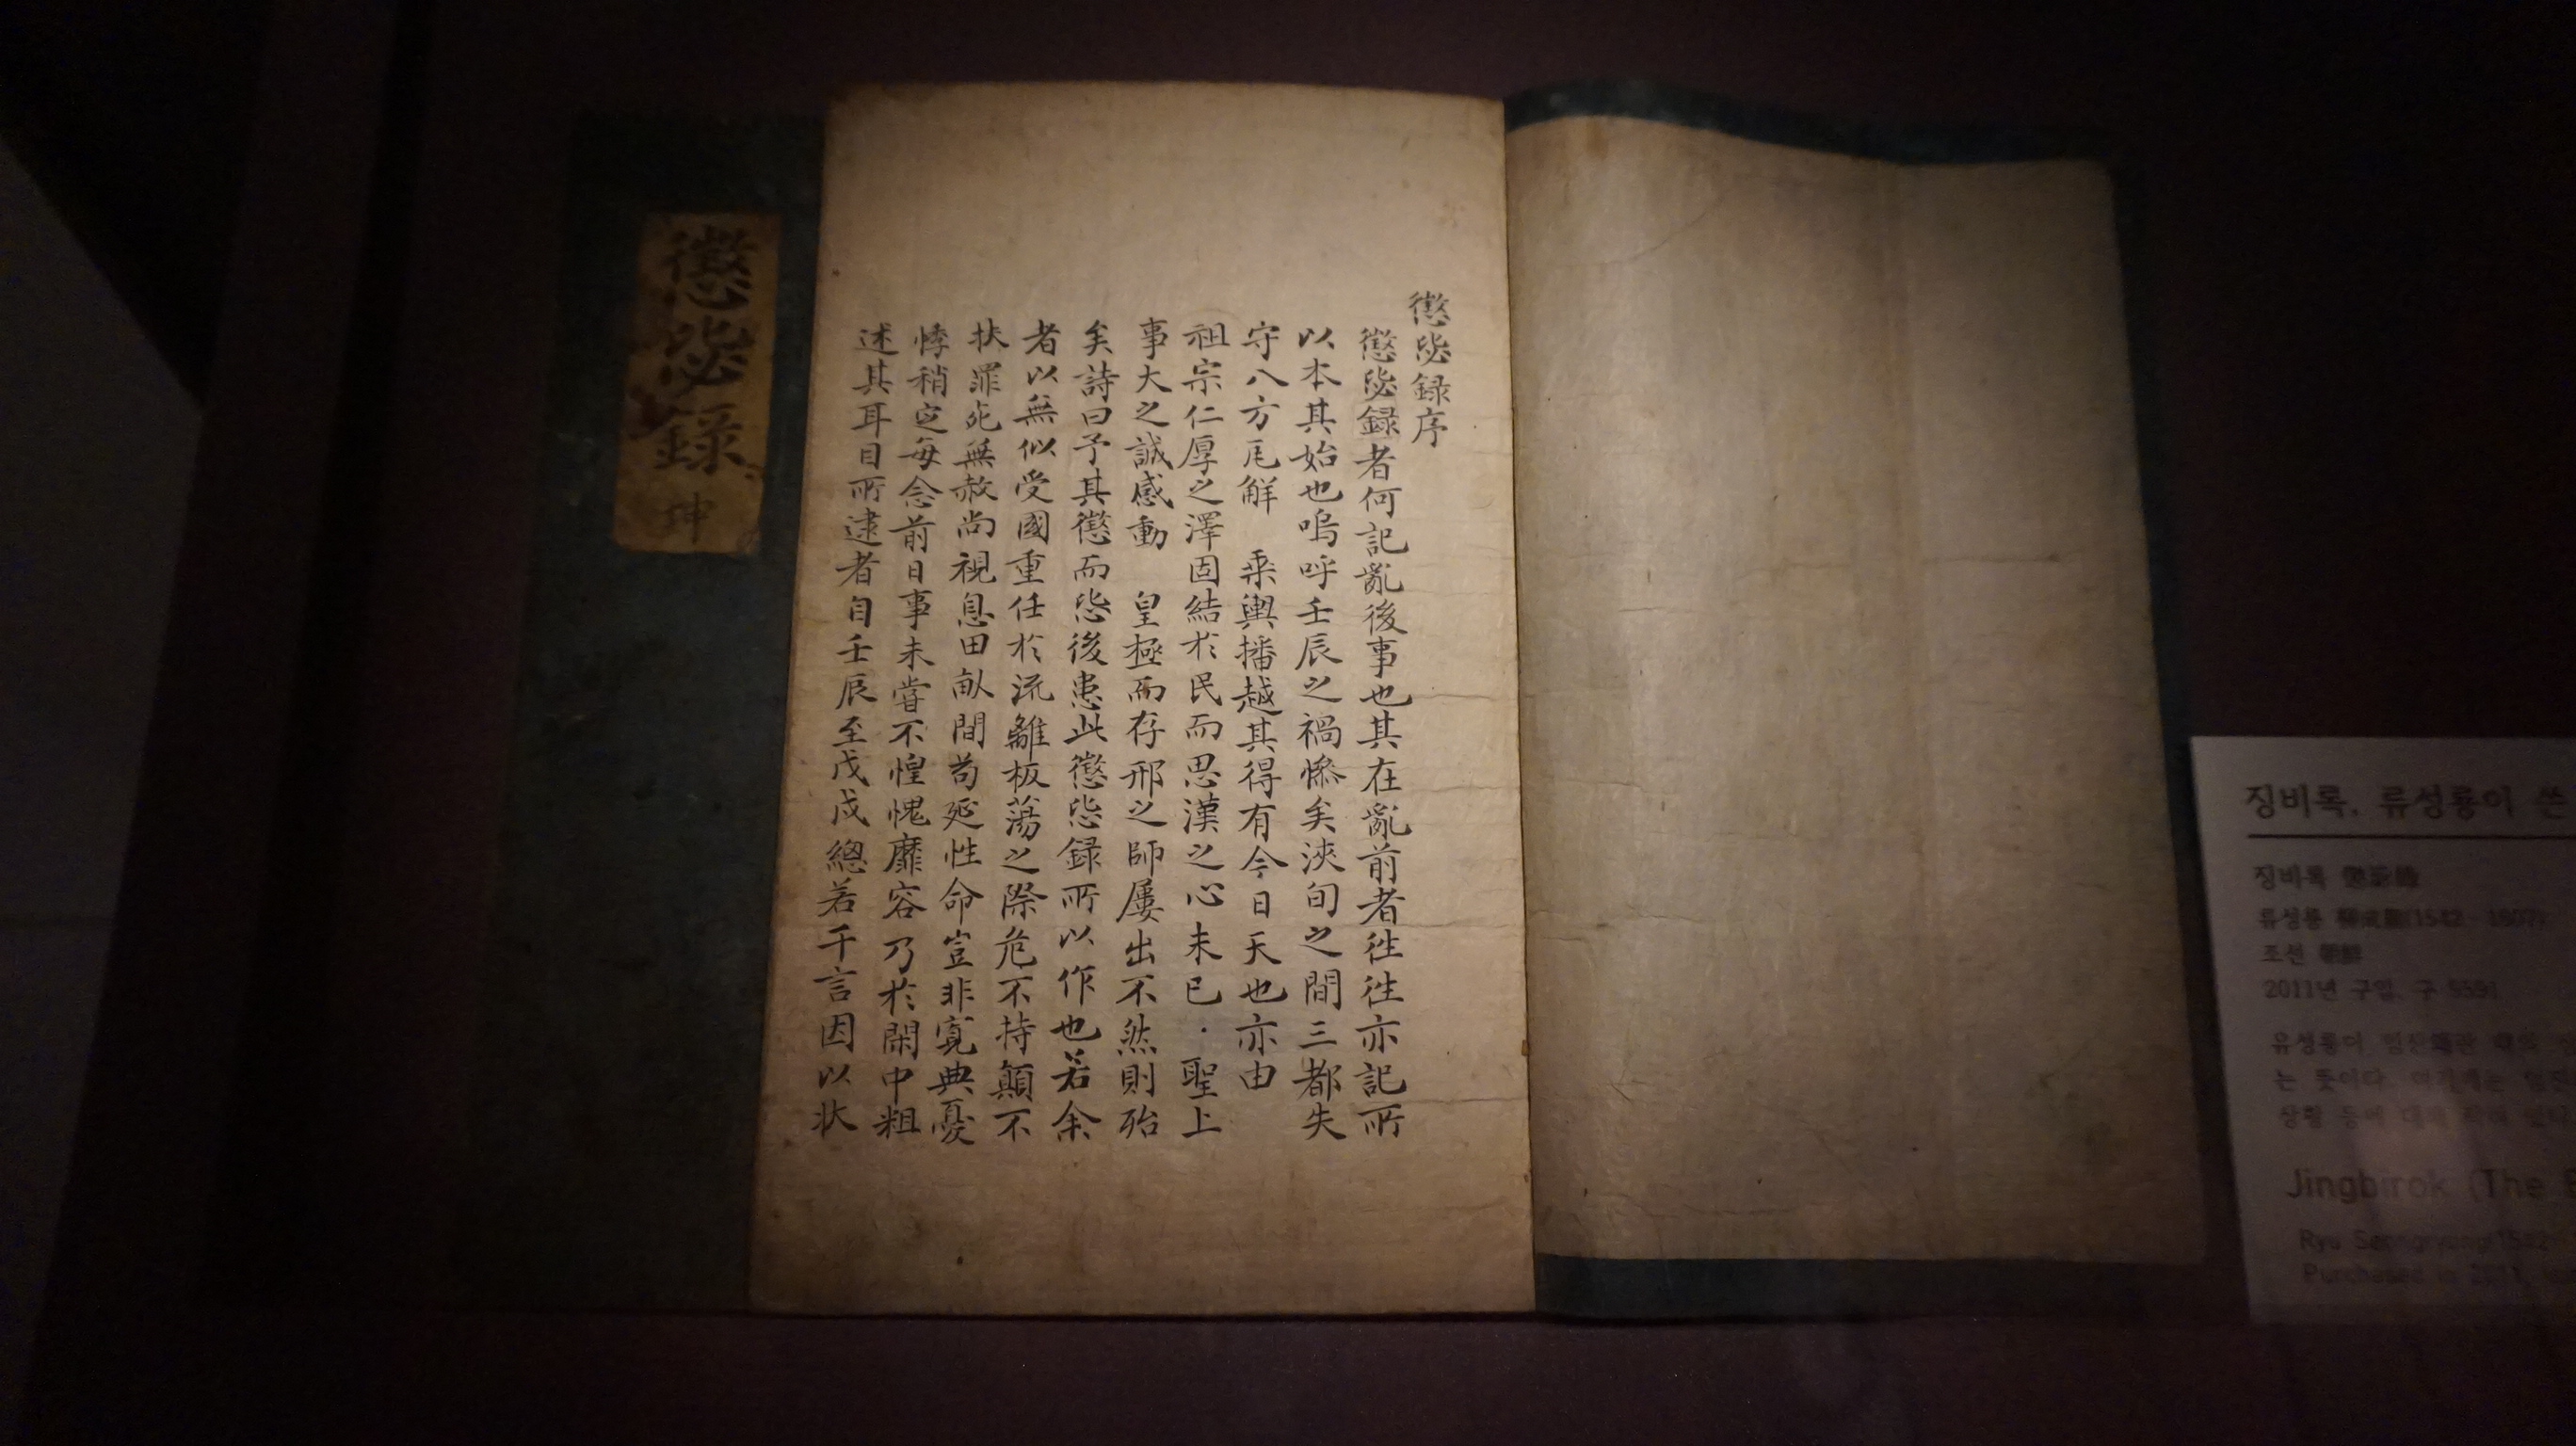 懲毖録序
懲毖録者何記亂後事也其在亂前者徃徃亦記所
以本其始也嗚呼壬辰之禍慘矣浹旬之間三都失
守八方瓦解 乘輿播越其得有今日天也亦由
祖宗仁厚之澤固結於民而思漢之心未已 聖上
事大之誠感動 皇極而存邢之師屢出不然則殆
矣詩曰予其懲而毖後患此懲毖録所以作也若余
者以無似受國重任於流離板蕩之際危不持顛不
扶罪死無赦尚視息田畝間苟延性命豈非寬典憂
悸稍定每念前日事未嘗不惶愧靡容乃於閑中粗
述其耳目所逮者自壬辰至戊戌總若干言因以狀
懲毖録
坤
징비록, 류성룡이 쓴
징비록
류성룡 (1542 - 1607)
조선
2011년 구입, 구
유성룡이
는 뜻이다.
상황 등에 대해
Jingbirok (The
Ryu Seongryong
Purchased in 2011,